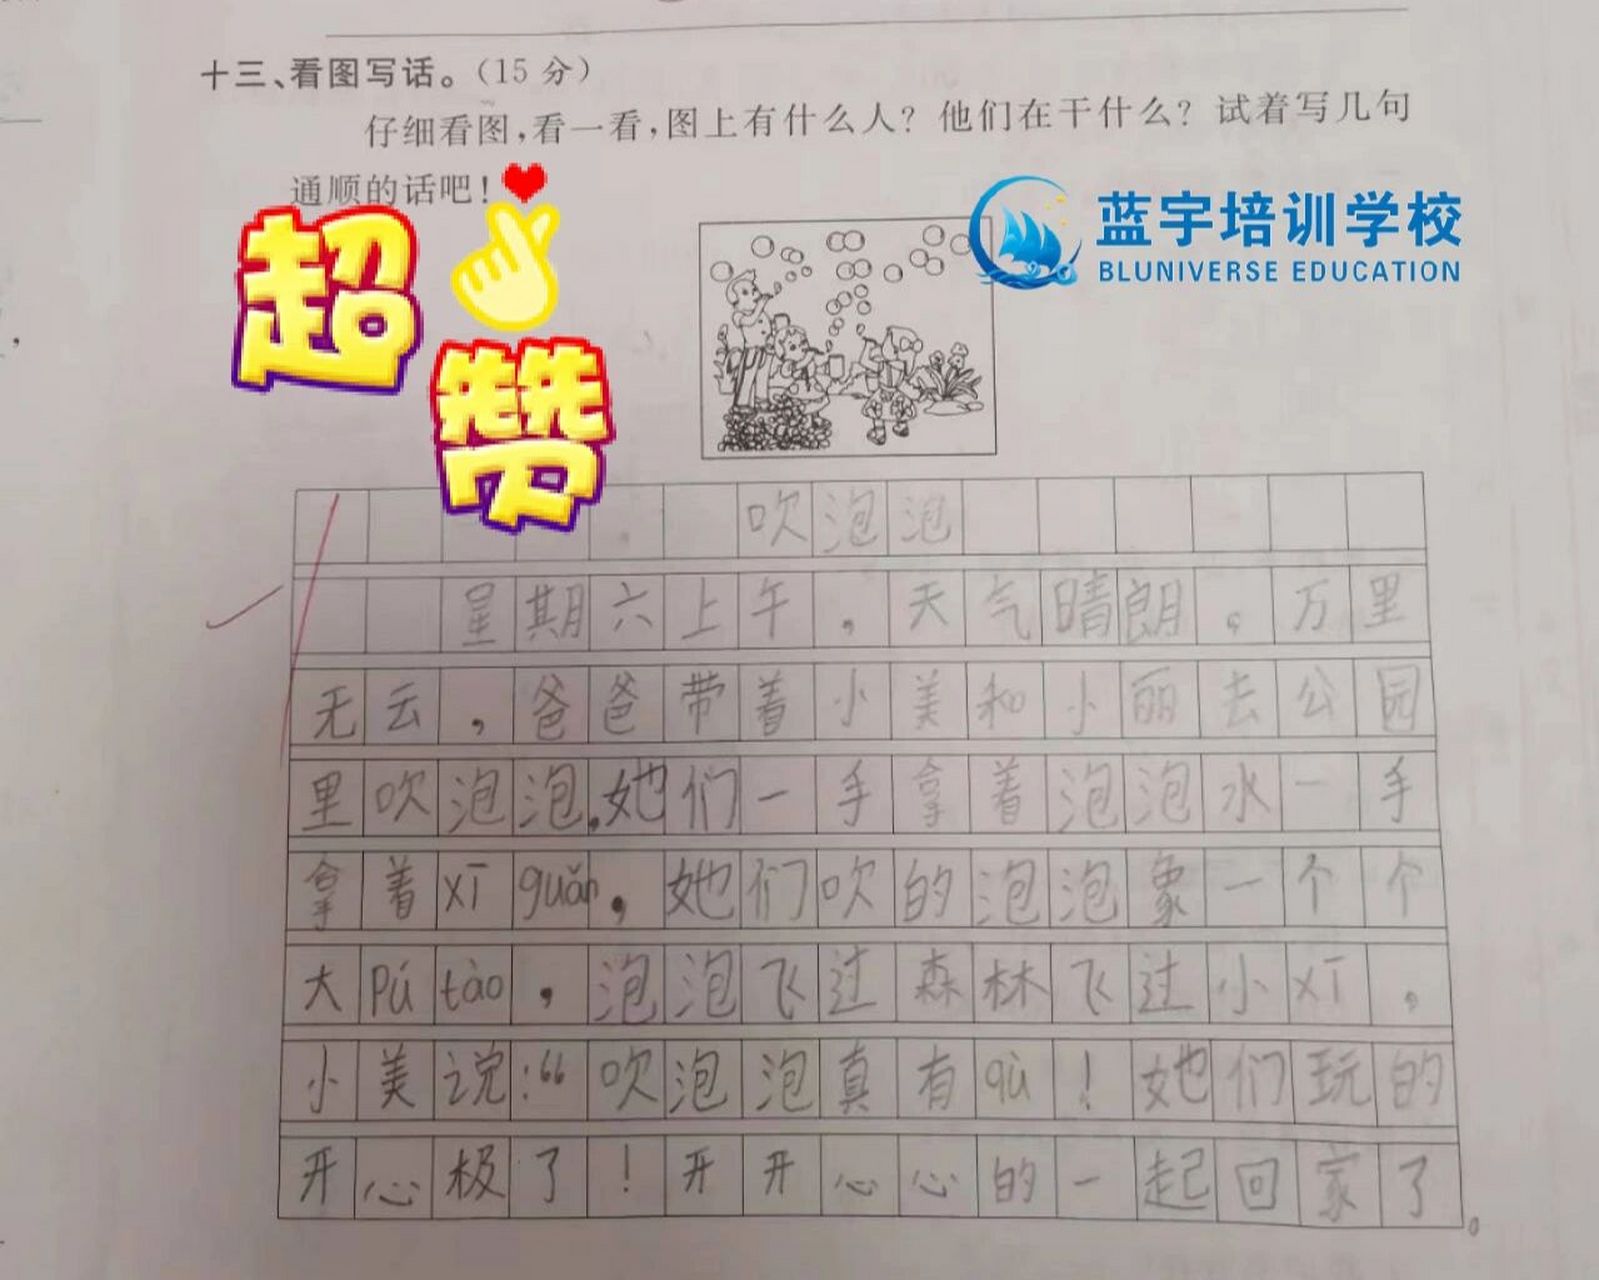 十三、看图写话。(15 分)
仔细看图,看一看,图上有什么人? 他们在干什么? 试着写几句
通顺的话吧!
超
赞
蓝宇培训学校
BLUNIVERSE EDUCATION
吹泡泡
星期六上午,天气晴朗。万里
无云,爸爸带着小美和小丽去公园
里吹泡泡,她们一手拿着泡泡水一手
拿着xī guǎn,她们吹的泡泡象一个个
大pú tào,泡泡飞过森林飞过小xī,
小美说:“吹泡泡真有qù!她们玩的
开心极了!开开心心的一起回家了。